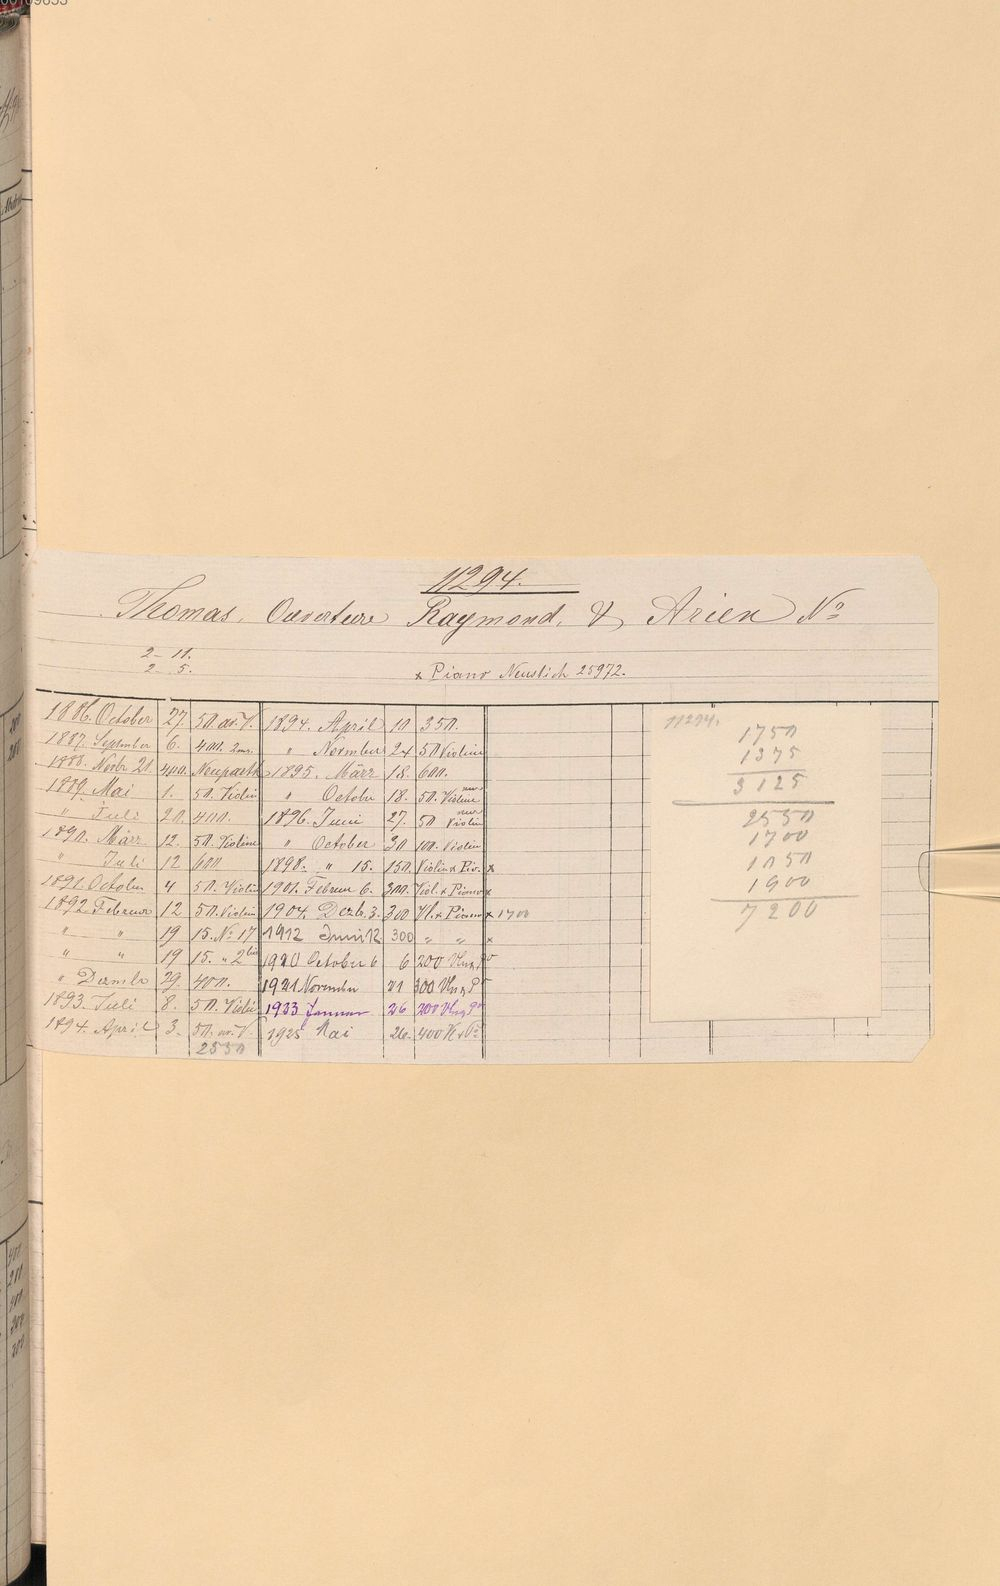 11294.
Thomas, Ouverture Raymond, & Arien No
2 - 11.
2 - 5.
x Piano Neustich 25972.
1886. October 27. 50. av. V.
1887. September 6. 400. 2
1888. Novbr 21. 400. Neupart
1889. Mai 1. 50. Violin
" Juli 20. 400.
1890. März 12. 50. Violine
" Juli 12 600
1891. October 4 50. Violin
1892. Februar 12 50. Violin
" " 19 15. No 17
" " 19 15. " 2
" Dezmbr 29. 400.
1893. Juli 8. 50. Violi
1894. April 3. 50. av. V.
2550
1894. April 10 350.
" November 24 50 Violine
1895. März 18. 600.
" October 18. 50. Violine nur
1896. Juni 27. 50 Violin nur
" October 30 100. Violin
1898. " 15. 150. Violin & Pio. x
1901. Februar 6. 300. Viol. & Piano x
1904. Dezb. 3. 300 Vl. & Piano x 1700
1912 Juni 12 300 " " x
1920 October 6 6 200 Vln & Po
1921 November 21 300 Vln & Po
1933 Januar 26 200 Vln & Po
1925 Mai 26. 400 Vl & Po
11294.
1750
1375
3125
2550
1700
1050
1900
7200